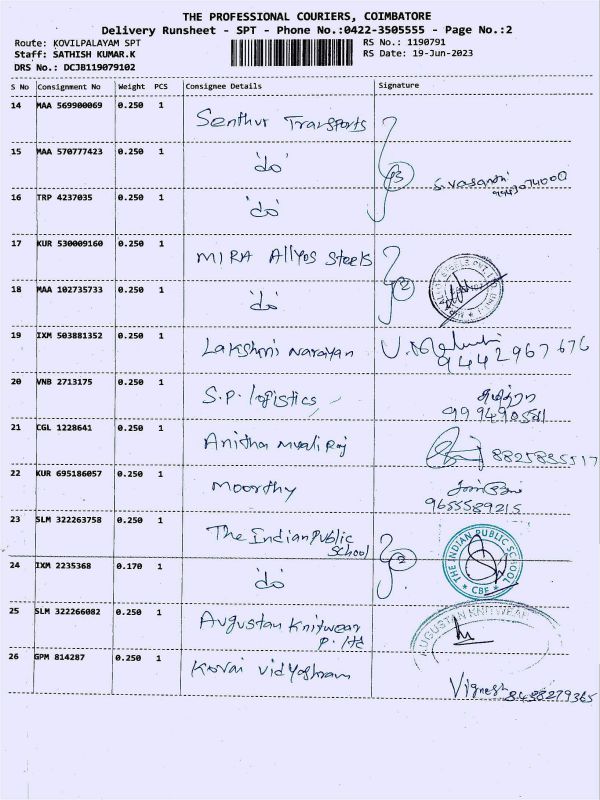 THE PROFESSIONAL COURIERS, COIMBATORE
Delivery Runsheet - SPT - Phone No.:0422-3505555 - Page No.:2
Route: KOVILPALAYAM SPT
RS No.: 1190791
Staff: SATHISH KUMAR.K
RS Date: 19-Jun-2023
DRS No.: DCJB119079102
S No Consignment No Weight PCS Consignee Details Signature
14 MAA 569900069 0.250 1 Senthur Transports
15 MAA 570777423 0.250 1 'do' 3 S. Vasanthi
16 TRP 4237035 0.250 1 'do'
17 KUR 530009160 0.250 1 MIRA Allyos Steels
18 MAA 102735733 0.250 1 'do' 2
19 IXM 503881352 0.250 1 Lakshmi Narayan 9442967676
20 VNB 2713175 0.250 1 S.P. logistics
21 CGL 1228641 0.250 1 Anitha Murali Raj 8825835517
22 KUR 695186057 0.250 1 Moorthy 9655589215
23 SLM 322263758 0.250 1 The Indian Public School 2
THE INDIAN PUBLIC SCHOOL
* CBE *
24 IXM 2235368 0.170 1 'do'
25 SLM 322266082 0.250 1 Augustan Knitwear P. ltd
AUGUSTAN KNITWEAR
26 GPM 814287 0.250 1 Kovai Vidyashram
Vignesh 8438279365